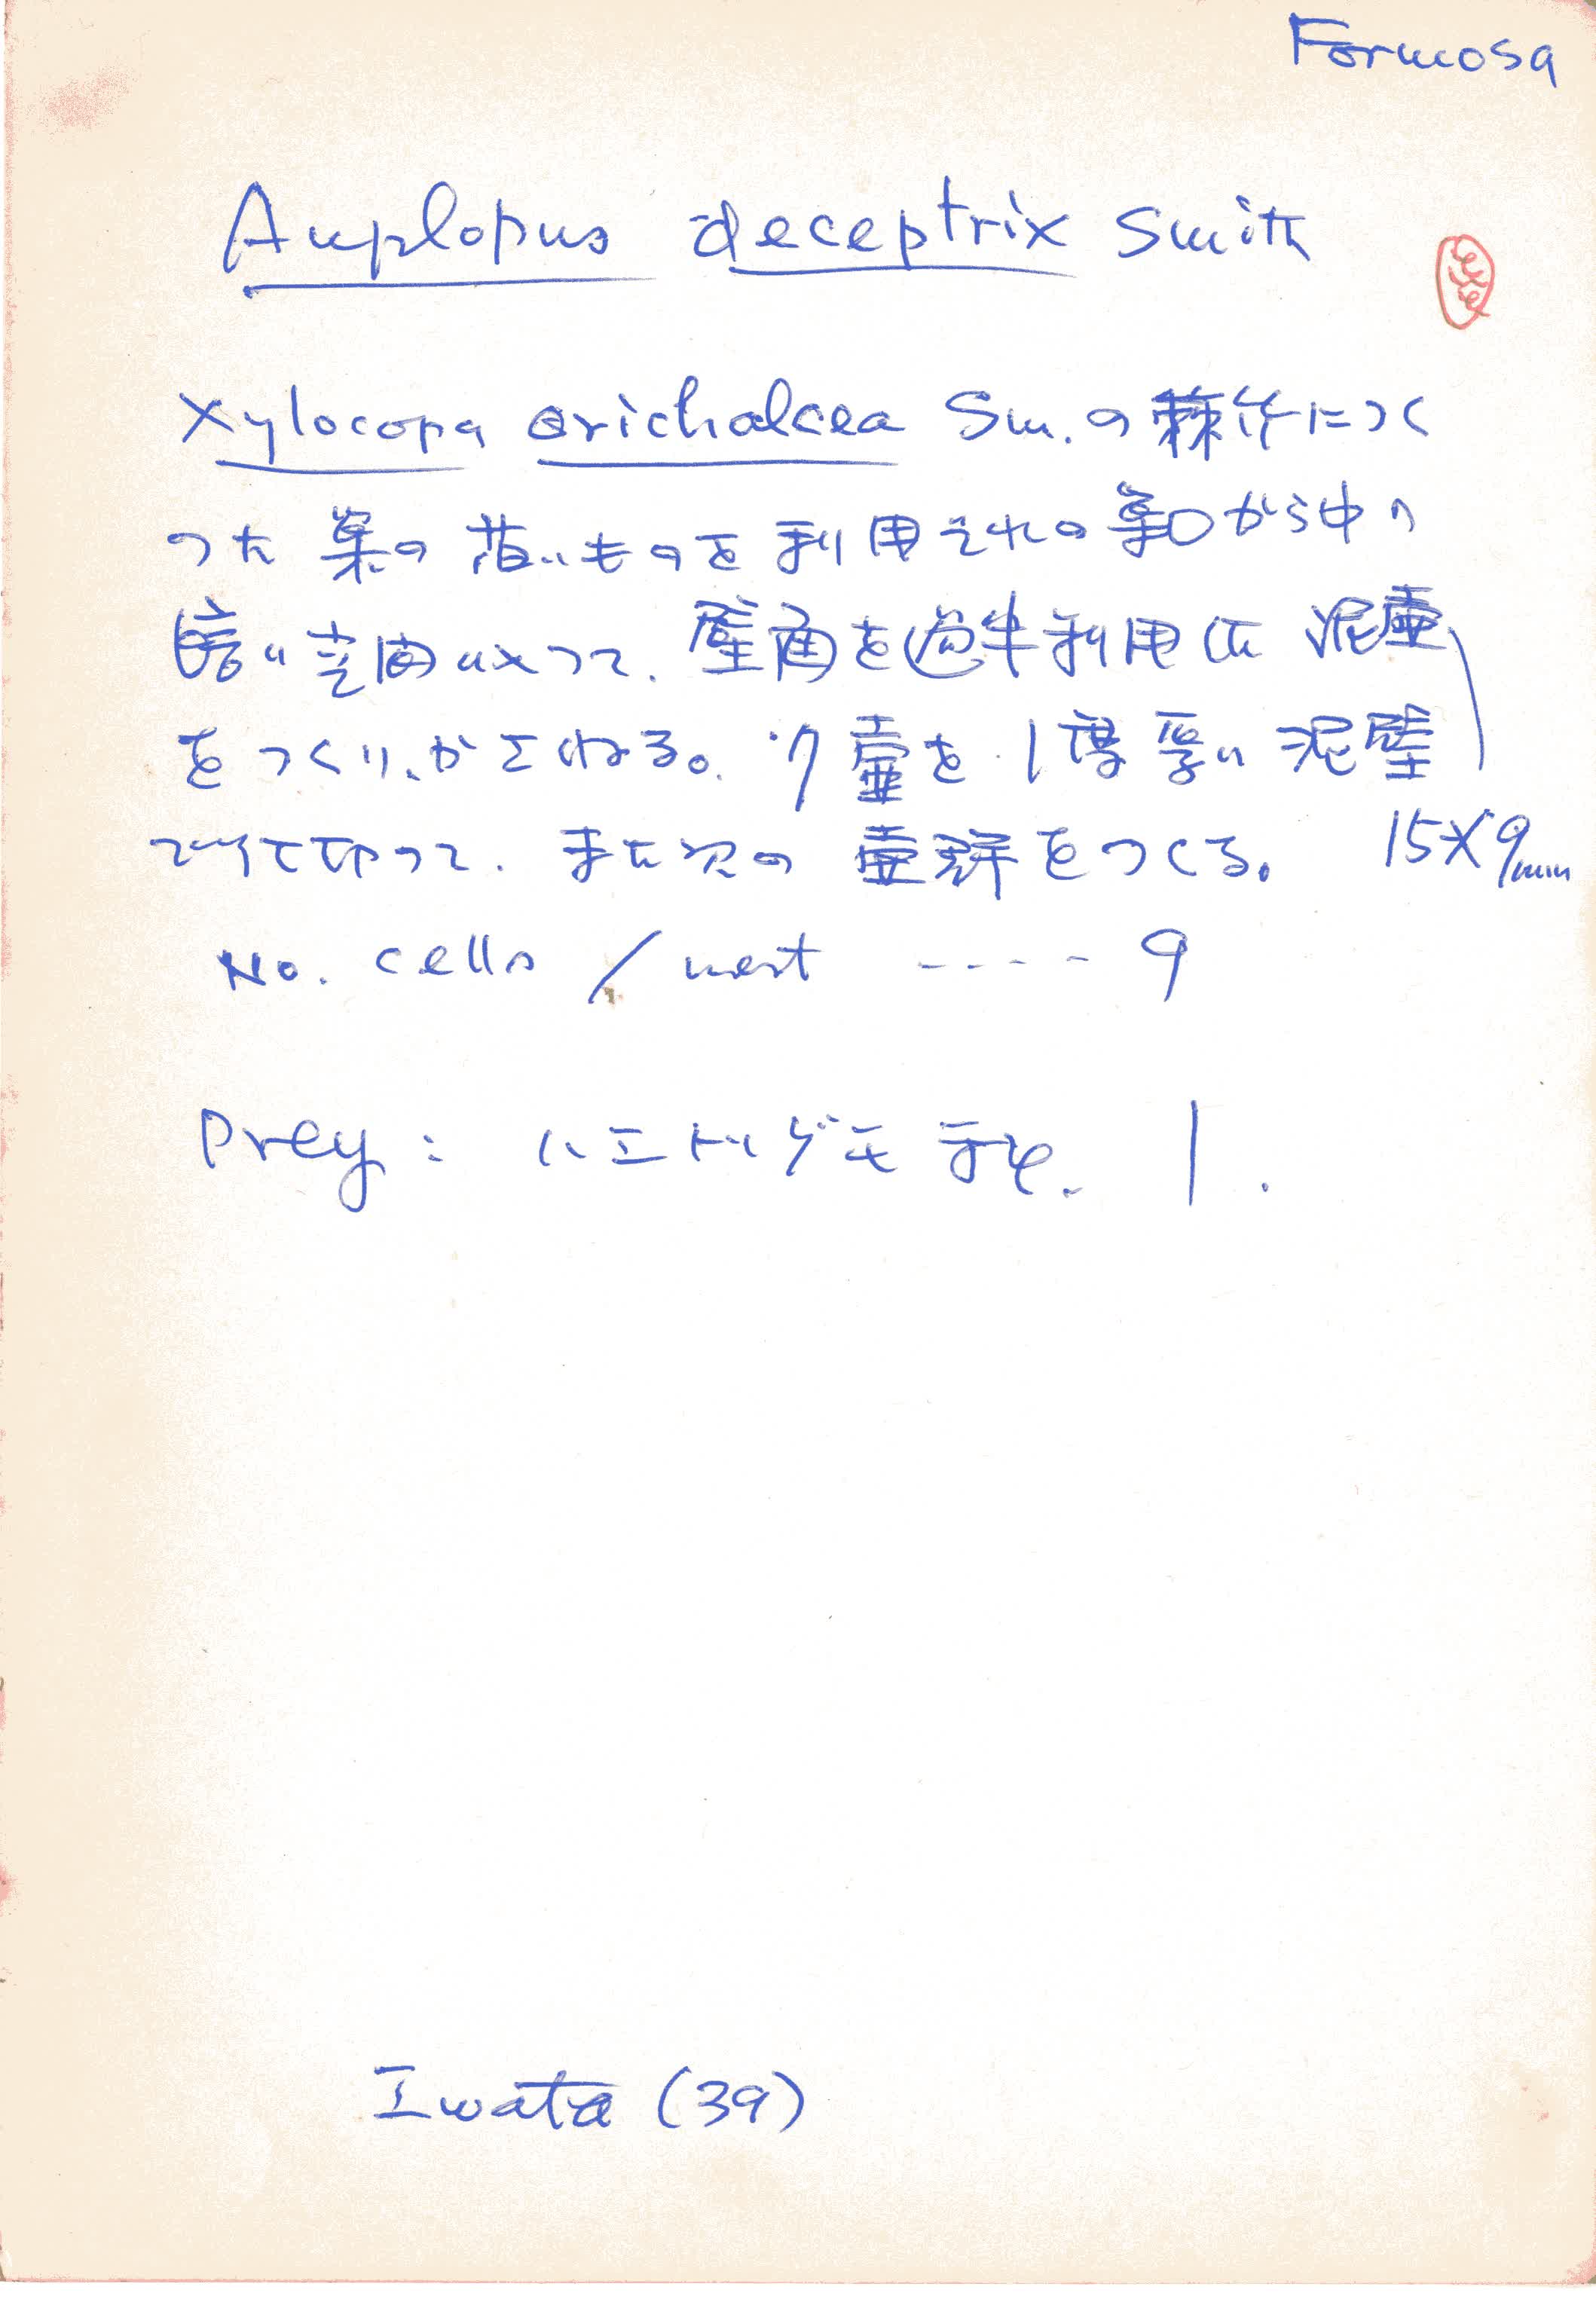 Formosa
Auplopus deceptrix Smith
Xylocopa orichalcea Sm. の 棘竹につく
つた 巣の 古いものを 利用 それの 巣口から中の
暗い空間に入つて、壁面を過半利用した 泥壷
をつくり、かさねる。 7壷を 1 層 厚い 泥壁
15×9mm
で仕切つて、また次の 壷群をつくる。
No. cells / nest ---- 9
Prey : ハエトリグモ 1.
Iwata (39)